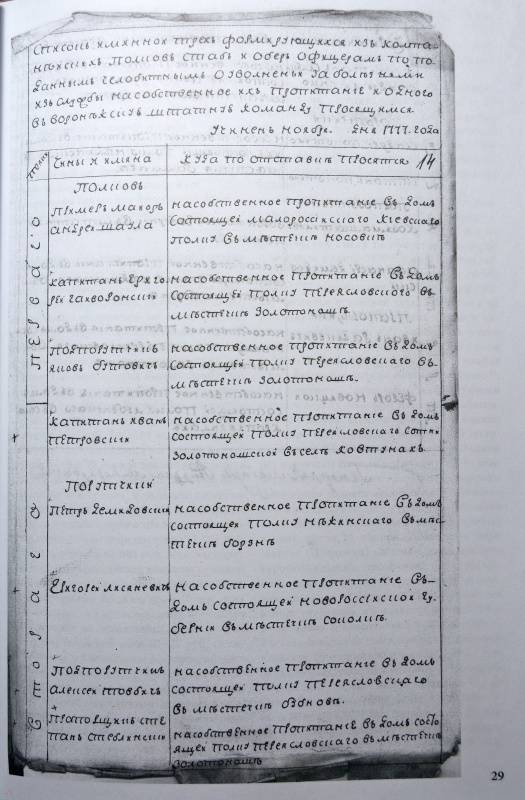 Списокъ имянной трехъ формирующихся изъ компа-
нейскихъ полковъ штабъ и оберъ офицерамъ по по-
даннымъ челобитнымъ о уволненіи за болезнями
изъ службы на собственное ихъ пропитание и одного
въ воронежскую штатную команду просящимся
Учиненъ ноября дня 1777 года
полки
Чины и имяна
куда по отставке просятся 14
Перваго
полковъ
Примеръ маиоръ
андрей шаула
на собственное пропитание въ домъ
состоящей малороссийского киевскаго
полку въ местечке носовке
капитанъ григо-
рей гакворонский
на собственное пропитание въ домъ
состоящей полку переясловского въ
местечке золотоноше
Подпорутчикъ
яковъ бутовичъ
на собственное пропитание въ домъ
состоящей полку переясловскаго въ
местечке золотоноше
капитанъ иванъ
петровский
на собственное пропитание въ домъ
состоящей полку переясловскаго сотни
золотоношской въ селе ковтунахъ
втораго
Порутчики
петръ демидовский
на собственное пропитание въ домъ
состоящей полку нежинскаго въ мес-
течке борзне
Григорей
на собственное пропитание въ
домъ состоящей новороссийской гу-
бернии въ местечке соколке
Подпорутчикъ
алексей товбичъ
на собственное пропитание въ домъ
состоящей полку переясловскаго
въ местечке бубнове
Прапорщикъ сте-
панъ стеблинский
на собственное пропитание въ домъ состо-
ящей полку переясловскаго въ местечке
золотоноше
29